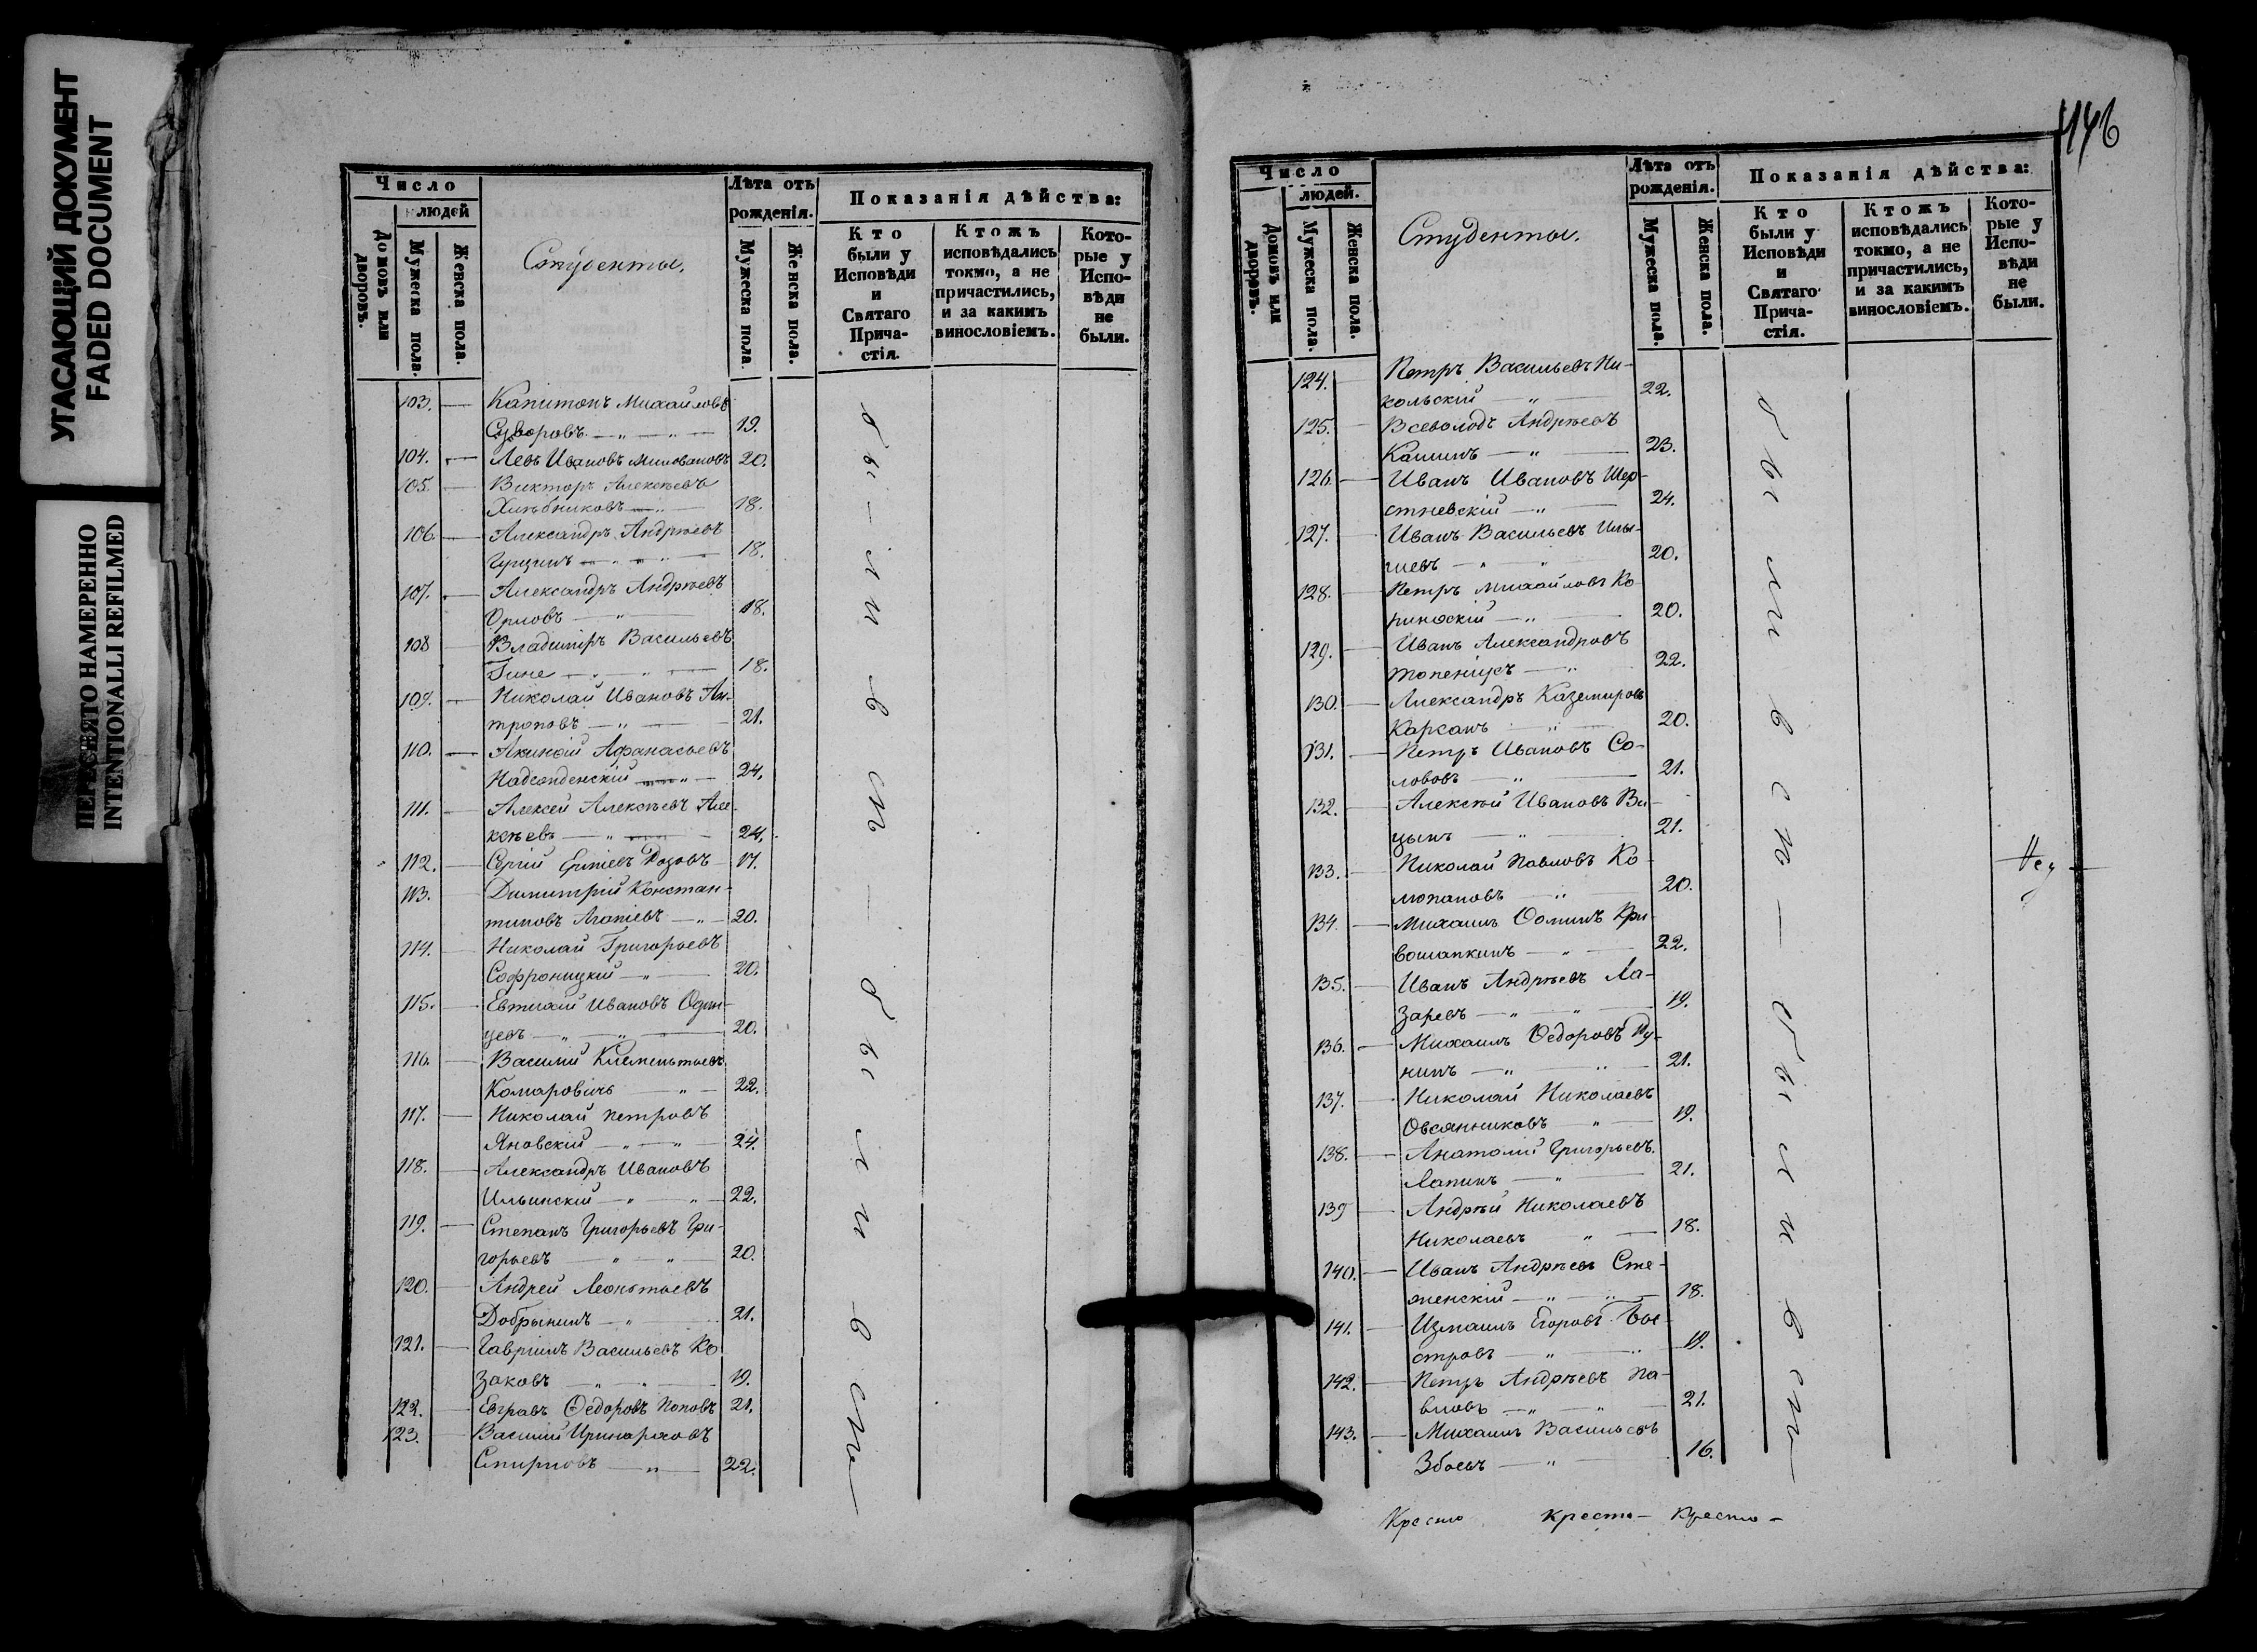 УГАСАЮЩИЙ ДОКУМЕНТ
FADED DOCUMENT
ПЕРЕСНЯТО НАМЕРЕННО
INTENTIONALLI REFILMED
Число
людей
Домовъ или дворовъ.
Мужеска пола.
Женска пола.
Студенты.
Лѣта отъ
рожденія.
Мужеска пола.
Женска пола.
Показанія дѣйства:
Кто
были у
Исповѣди
и
Святаго
Прича-
стія.
Ктожъ
исповѣдались
токмо, а не
причастились,
и за какимъ
винословіемъ.
Кото-
рые у
Испо-
вѣди
не
были.
103. Капитонъ Михайловъ
Суворовъ 19.
104. Левъ Ивановъ Миловановъ 20.
105. Викторъ Алексѣевъ
Хлѣбниковъ 18.
106. Александръ Андрѣевъ
18.
107. Александръ Андрѣевъ
Орловъ 18.
108 Владиміръ Васильевъ
Гине 18.
109. Николай Ивановъ Ан-
троповъ 21.
110. Афанасьевъ
24.
111. Алексей Алексѣевъ Але-
ксѣевъ 24.
112. Сергій 17.
113. Димитрій Констан-
тиновъ Агапіевъ 20.
114. Николай Григорьевъ
Софроницкій 20.
115. Евтихій Ивановъ Один-
цевъ 20.
116. Василій Клементьевъ
Комаровичъ 22.
117. Николай Петровъ
Яновскій 24.
118. Александръ Ивановъ
Ильинскій 22.
119. Степанъ Григорьевъ Гри-
горьевъ 20.
120. Андрей Леонтьевъ
Добрынинъ 21.
121. Гавріилъ Васильевъ Ко
заковъ 19.
122. Евграфъ Ѳедоровъ Поповъ 21.
123. Василій Иринарховъ
Смирновъ 22.
были в ст — были в ст
446
Число
людей.
Домовъ или дворовъ.
Мужеска пола.
Женска пола.
Студенты.
Лѣта отъ
рожденія.
Мужеска пола.
Женска пола.
Показанія дѣйства:
Кто
были у
Исповѣди
и
Святаго
Прича-
стія.
Ктожъ
исповѣдались
токмо, а не
причастились,
и за какимъ
винословіемъ.
Кото-
рые у
Испо-
вѣди
не
были.
124. Петръ Васильевъ Ни-
кольскій 22.
125. Всеволодъ Андрѣевъ
Кашинъ 23.
126. Иванъ Ивановъ Шер-
стневскій 24.
127. Иванъ Васильевъ
20.
128. Петръ Михайловъ Ко-
ринѳскій 20.
129. Иванъ Александровъ
22.
130. Александръ Каземировъ
20.
131. Петръ Ивановъ Со-
лововъ 21.
132. Алексѣй Ивановъ Ви-
цынъ 21.
133. Николай Павловъ Ко-
20.
134. Михаилъ Ѳоминъ Кри-
вошапкинъ 22.
135. Иванъ Андрѣевъ Ла-
заревъ 19.
136. Михаилъ Ѳедоровъ
21.
137. Николай Николаевъ
Овсянниковъ 19.
138. Анатолій Григорьевъ
Лапинъ 21.
139 Андрѣй Николаевъ
Николаевъ 18.
140. Иванъ Андрѣевъ Сте-
18.
141. Измаилъ Егоровъ Вос-
19.
142. Петръ Андрѣевъ Па-
вловъ 21.
143. Михаилъ Васильевъ
Збоевъ 16.
были в ст — были в ст